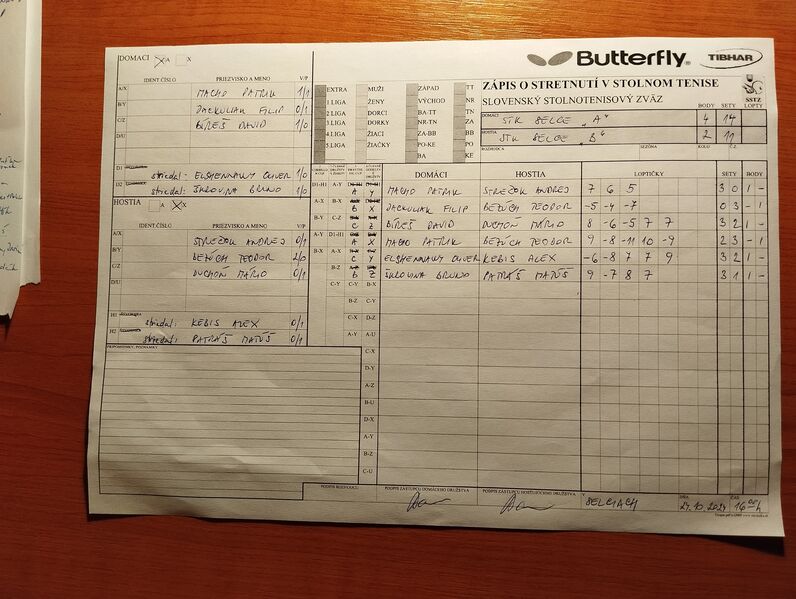 Butterfly
TIBHAR
ZÁPIS O STRETNUTÍ V STOLNOM TENISE
SLOVENSKÝ STOLNOTENISOVÝ ZVÄZ
SSTZ
BODY SETY LOPTY
DOMÁCI STK BELCE "A" 4 14
HOSTIA STK BELCE "B" 2 11
ROZHODCA SEZÓNA KOLO Č.Z.
EXTRA MUŽI ZÁPAD TT
1 LIGA ŽENY VÝCHOD NR
2 LIGA DORCI BA-TT TN
3 LIGA DORKY NR-TN ZA
4 LIGA ŽIACI ZA-BB BB
5 LIGA ŽIAČKY PO-KE PO
BA KE
DOMÁCI X A
IDENT.ČÍSLO PRIEZVISKO A MENO V/P
A/X MACHO PATRIK 1/1
B/Y JACKULIAK FILIP 0/1
C/Z BÍREŠ DAVID 1/0
D/U
D1 striedal: ELSHENNAWY OLIVER 1/0
D2 striedal: ŠKROVINA BRUNO 1/0
HOSTIA A X X
IDENT.ČÍSLO PRIEZVISKO A MENO V/P
A/X STREŽOK ANDREJ 0/1
B/Y BEŽÚCH TEODOR 2/0
C/Z DUCHOŇ MÁRIO 0/1
H1 striedal: KEBIS ALEX 0/1
H2 striedal: PATRÁŠ MATÚŠ 0/1
PRIPOMIENKY, POZNÁMKY
DOMÁCI HOSTIA LOPTIČKY SETY BODY
D1-H1 A-Y A Y MACHO PATRIK STREŽOK ANDREJ 7 6 5 3 0 1 -
A-X B-X B X JACKULIAK FILIP BEŽÚCH TEODOR -5 -4 -7 0 3 - 1
B-Y C-Z C Z BÍREŠ DAVID DUCHOŇ MÁRIO 8 -6 -5 7 7 3 2 1 -
A-Y D1-H1 A X MACHO PATRIK BEŽÚCH TEODOR 9 -8 -11 10 -9 2 3 - 1
B-X A-X C Y ELSHENNAWY OLIVER KEBIS ALEX -6 -8 7 7 9 3 2 1 -
B-Z B Z ŠKROVINA BRUNO PATRÁŠ MATÚŠ 9 -7 8 7 3 1 1 -
C-Y C-Y
B-Z C-Y
C-X D-Z
A-Y A-U
C-X
D-Y
A-Z
B-U
D-X
A-Y
B-Z
C-U
PODPIS ROZHODCU PODPIS ZÁSTUPCU DOMÁCEHO DRUŽSTVA PODPIS ZÁSTUPCU HOSŤUJÚCEHO DRUŽSTVA V BELCIACH DŇA 27.10.2024 ČAS 16 00 h